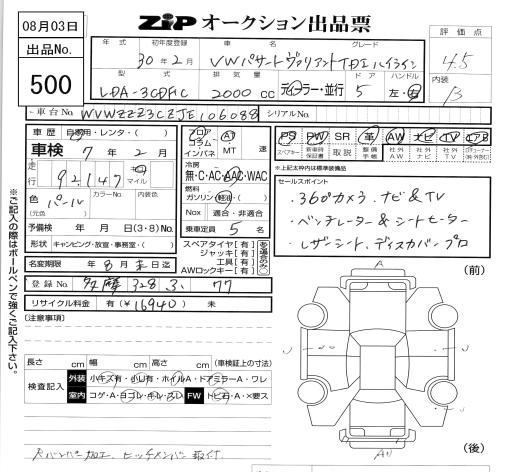 08月03日
ZiP オークション出品票
出品No.
500
年式 初年度登録 車名 グレード
30年2月 VWパサートヴァリアントTDIハイライン
評価点
4.5
型式 排気量 ドア ハンドル
LDA-3CDFC 2000cc ディーラー・並行 5 左・右
内装
B
車台No. WVWZZZ3CZJE106088 シリアルNo.
車歴 自家用・レンタ・( )
車検 7年2月
フロア コラム インパネ AT MT 速
PS PW SR 革 AW ナビ TV エアB
スペアキー 新車時保証書 取説 整備手帳 社外AW 社外ナビ 社外TV
※上記太枠内は標準装備品
走行 92,147 km マイル
冷房
無・C・AC・AAC・WAC
色 パール
(元色)
カラーNo. 内装色
燃料
ガソリン・軽油・( )
Nox 適合・非適合
予備検 年 月 日(3・8)No.
形状 キャンピング・放宣・事務室・( )
乗車定員 5 名
セールスポイント
・360°カメラ.ナビ&TV
・ベンチレーター&シートヒーター
・レザーシート.ディスカバープロ
名変期限 年 8月末日迄
スペアタイヤ[有]
ジャッキ[有]
工具[有]
AWロックキー[有]
(有る場合のみ○)
登録No. 多摩 328 す 77
リサイクル料金 有(¥16940) 未
[注意事項]
(前)
A
長さ cm 幅 cm 高さ cm (車検証上の寸法)
検査記入 外装 小キズ有・小凹有・ホイルA・ドアミラーA・ワレ
室内 コゲA・ヨゴレ・キレ・スレ FW トビ石・A・×要ス
(後)
※ご記入の際はボールペンで強くご記入下さい。